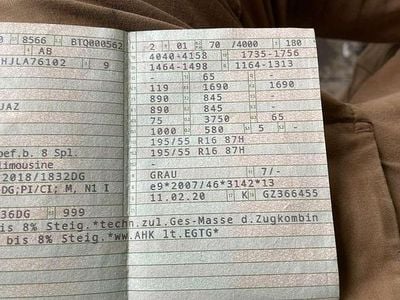 10 8566 BTQ000562
AB
HJLA76102 9
JAZ
bef.b. 8 Spl.
limousine
2018/1832DG
DG;PI/CI; M, N1 I
36DG 999
bis 8% Steig.*techn.zul.Ges-Masse d.Zugkombin
bis 8% Steig.*ww.AHK lt.EGTG*
2 01 70 /4000 180
4040-4158 1735-1756
1464-1498 1164-1313
- 65 -
119 1690 1690
890 845 -
890 845 -
75 3750 65
1000 580 5 -
195/55 R16 87H
195/55 R16 87H
-
GRAU 7/-
e9*2007/46*3142*13
11.02.20 K GZ366455